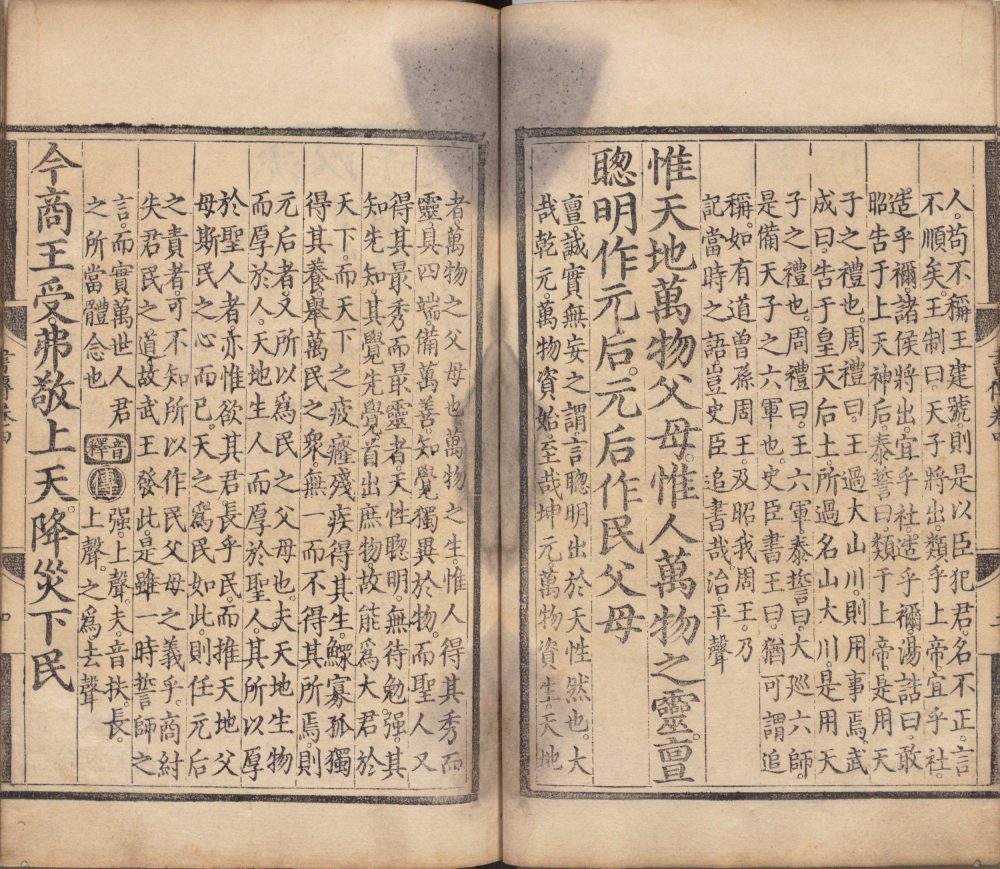 人。苟不稱王建號。則是以臣犯君。名不正。言
不順矣。王制曰。天子將出。類乎上帝。宜乎社。
造乎禰。諸侯將出。宜乎社。造乎禰。湯誥曰。敢
昭告于上天神后。泰誓曰。類于上帝。是用天
子之禮也。周禮曰。王過大山川。則用事焉。武
成曰。告于皇天后土。所過名山大川。是用天
子之禮也。周禮曰。王六軍。泰誓曰。大巡六師。
是備天子之六軍也。史臣書王曰。猶可謂追
稱。如有道曾孫周王。及昭我周王。乃
記當時之語。豈史臣追書哉。治。平聲
惟天地萬物父母。惟人萬物之靈。亶
聰明作元后。元后作民父母
亶。誠實無妄之謂。言聰明出於天性然也。大
哉乾元。萬物資始。至哉坤元。萬物資生。天地
者。萬物之父母也。萬物之生。惟人得其秀而
靈。具四端。備萬善。知覺獨異於物。而聖人又
得其最秀而最靈者。天性聰明。無待勉强。其
知先知。其覺先覺。首出庶物。故能爲大君於
天下。而天下之疲癃殘疾得其生。鰥寡孤獨
得其養。舉萬民之衆。無一而不得其所焉。則
元后者。又所以爲民之父母也。夫天地生物
而厚於人。天地生人而厚於聖人。其所以厚
於聖人者。亦惟欲其君長乎民。而推天地父
母斯民之心而已。天之爲民如此。則任元后
之責者。可不知所以作民父母之義乎。商紂
失君民之道。故武王發此。是雖一時誓師之
言。而實萬世人君 音釋 强。上聲。夫。音扶。長。
之所當體念也 上聲。之爲。去聲
今商王受弗敬上天。降災下民